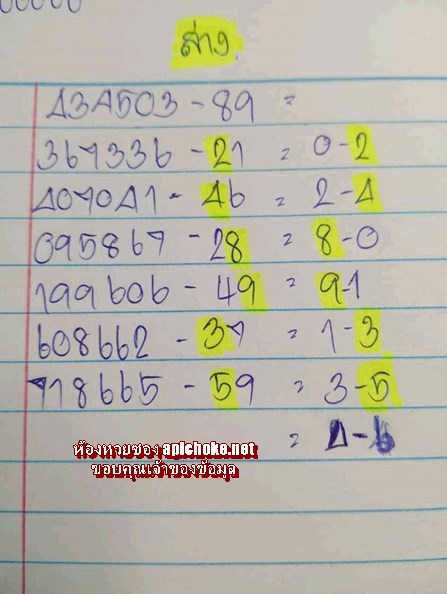 ล่าง.
434503 - 89 =
367336 - 21 = 0-2
407041 - 46 = 2-4
095867 - 28 = 8-0
199606 - 49 = 9-1
608662 - 37 = 1-3
718665 - 59 = 3-5
= 4-6
ห้องหวยซอง apichoke.net
ขอบคุณเจ้าของข้อมูล